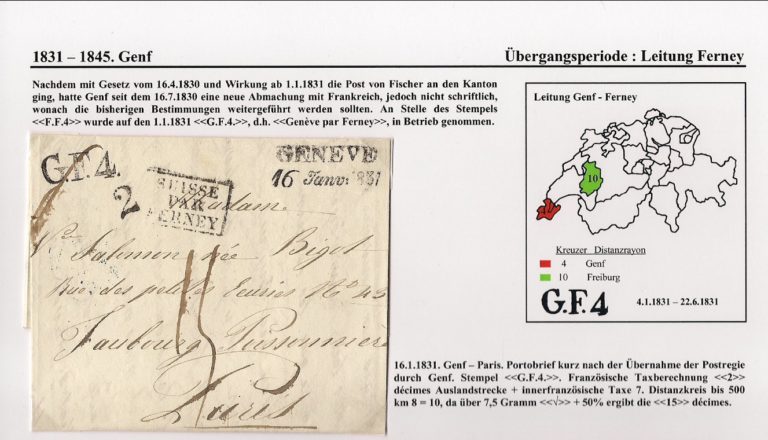 1831 – 1845. Genf
Übergangsperiode : Leitung Ferney
Nachdem mit Gesetz vom 16.4.1830 und Wirkung ab 1.1.1831 die Post von Fischer an den Kanton
ging, hatte Genf seit dem 16.7.1830 eine neue Abmachung mit Frankreich, jedoch nicht schriftlich,
wonach die bisherigen Bestimmungen weitergeführt werden sollten. An Stelle des Stempels
<<F.F.4>> wurde auf den 1.1.1831 <<G.F.4.>>, d.h. <<Genève par Ferney>>, in Betrieb genommen.
Leitung Genf - Ferney
10
Kreuzer Distanzrayon
4 Genf
10 Freiburg
G.F.4 4.1.1831 – 22.6.1831
G.F.4.
GENEVE
16 Janv. 1831
2
SUISSE
PAR
FERNEY
Madame
Salomon née Bigot
Rue des petites Ecuries No 43
Faubourg Poissonnière
Paris
15
16.1.1831. Genf – Paris. Portobrief kurz nach der Übernahme der Postregie
durch Genf. Stempel <<G.F.4.>>. Französische Taxberechnung <<2>>
décimes Auslandstrecke + innerfranzösische Taxe 7. Distanzkreis bis 500
km 8 = 10, da über 7,5 Gramm <<√>> + 50% ergibt die <<15>> décimes.